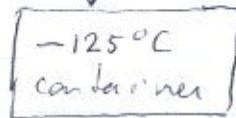 -125°C
container